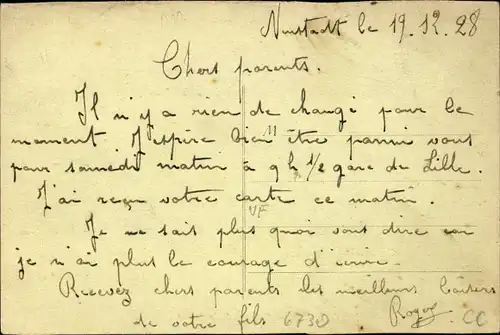 Neustadt le 19.12.28
Chers parents.
Il n'y a rien de changé pour le
moment J'espère bien être parmi vous
pour samedi matin à 9h 1/2 gare de Lille.
J'ai reçu votre carte ce matin.
VF
Je ne sait plus quoi vous dire car
je n'ai plus le courage d'écrire.
Recevez chers parents les meilleurs baisers
de votre fils 6730 Roger CC